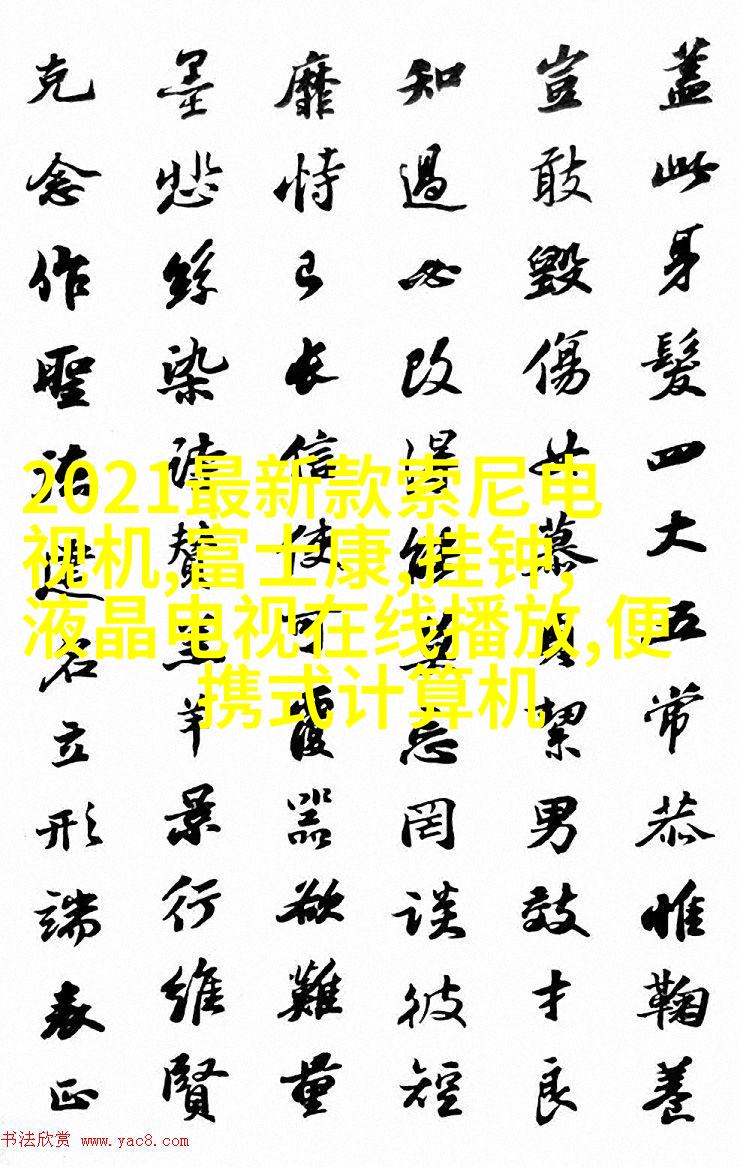 蓋此身髮四大五常恭惟鞠養
豈敢毀傷女慕貞絜男效才良
知過必改得能莫忘罔談彼短
靡恃己長信使可覆器欲難量
墨悲絲染詩贊羔羊景行維賢
克念作聖德建名立形端表正
2021最新款索尼电
视机,富士康,挂钟,
液晶电视在线播放,便
携式计算机
书法欣赏 www.yac8.com